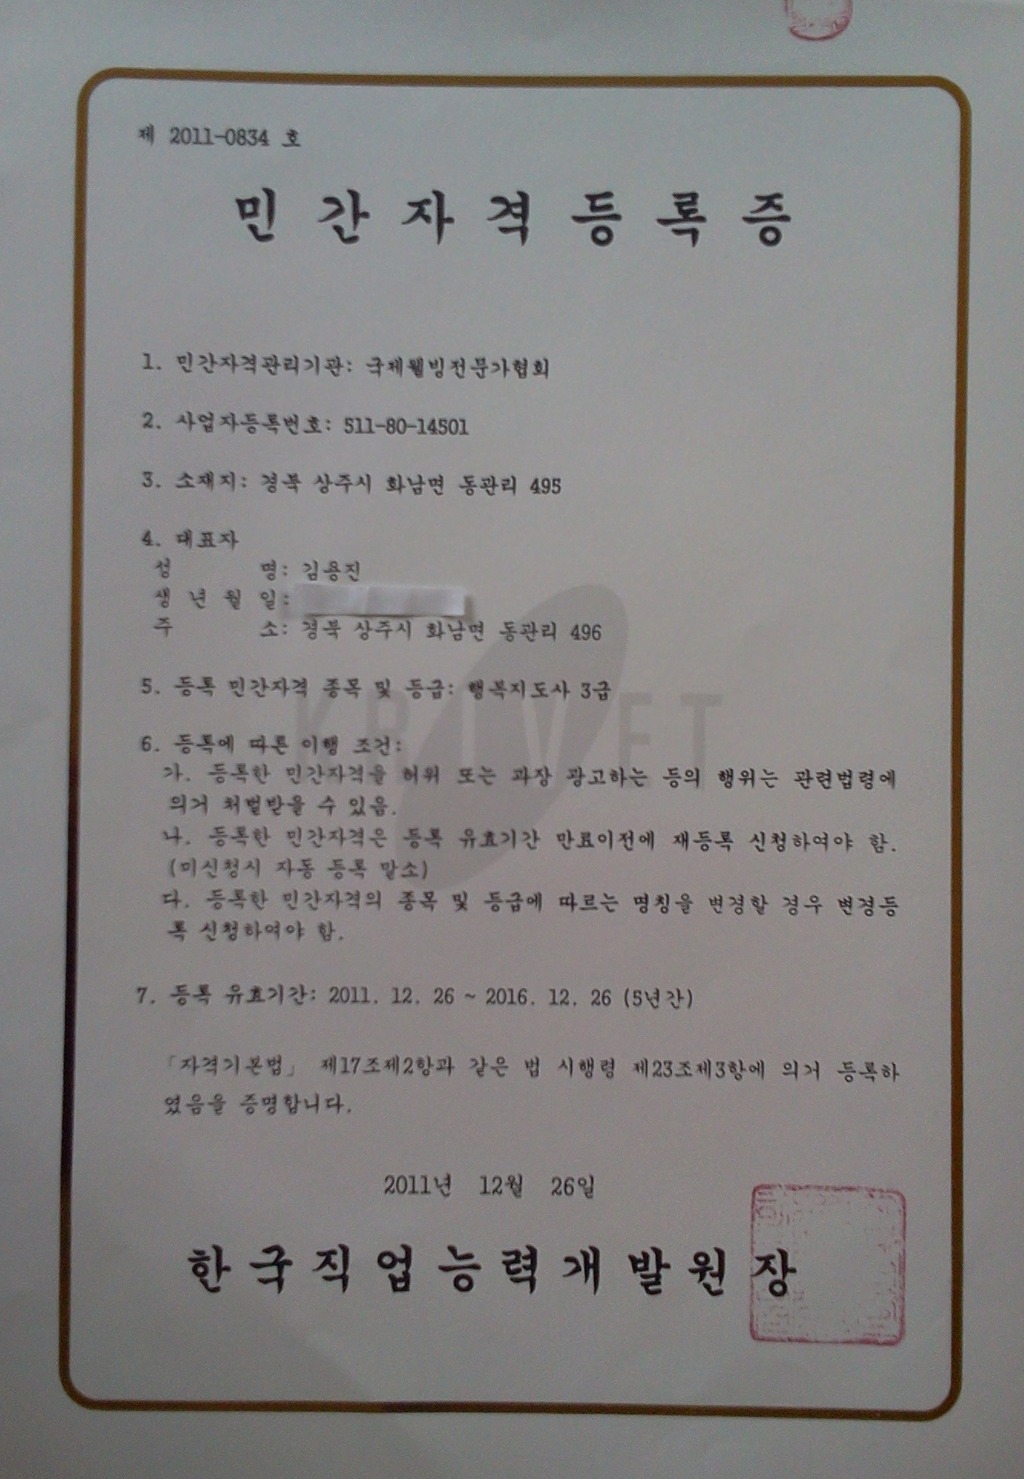 제 2011-0834 호
민간자격등록증
1. 민간자격관리기관: 국제웰빙전문가협회
2. 사업자등록번호: 511-80-14501
3. 소재지: 경북 상주시 화남면 동관리 495
4. 대표자
성 명: 김용진
생 년 월 일:
주 소: 경북 상주시 화남면 동관리 496
5. 등록 민간자격 종목 및 등급: 행복지도사 3급
KRIVET
6. 등록에 따른 이행 조건:
가. 등록한 민간자격을 허위 또는 과장 광고하는 등의 행위는 관련법령에
의거 처벌받을 수 있음.
나. 등록한 민간자격은 등록 유효기간 만료이전에 재등록 신청하여야 함.
(미신청시 자동 등록 말소)
다. 등록한 민간자격의 종목 및 등급에 따르는 명칭을 변경할 경우 변경등
록 신청하여야 함.
7. 등록 유효기간: 2011. 12. 26 ~ 2016. 12. 26 (5년간)
「자격기본법」 제17조제2항과 같은 법 시행령 제23조제3항에 의거 등록하
였음을 증명합니다.
2011년 12월 26일
한국직업능력개발원장